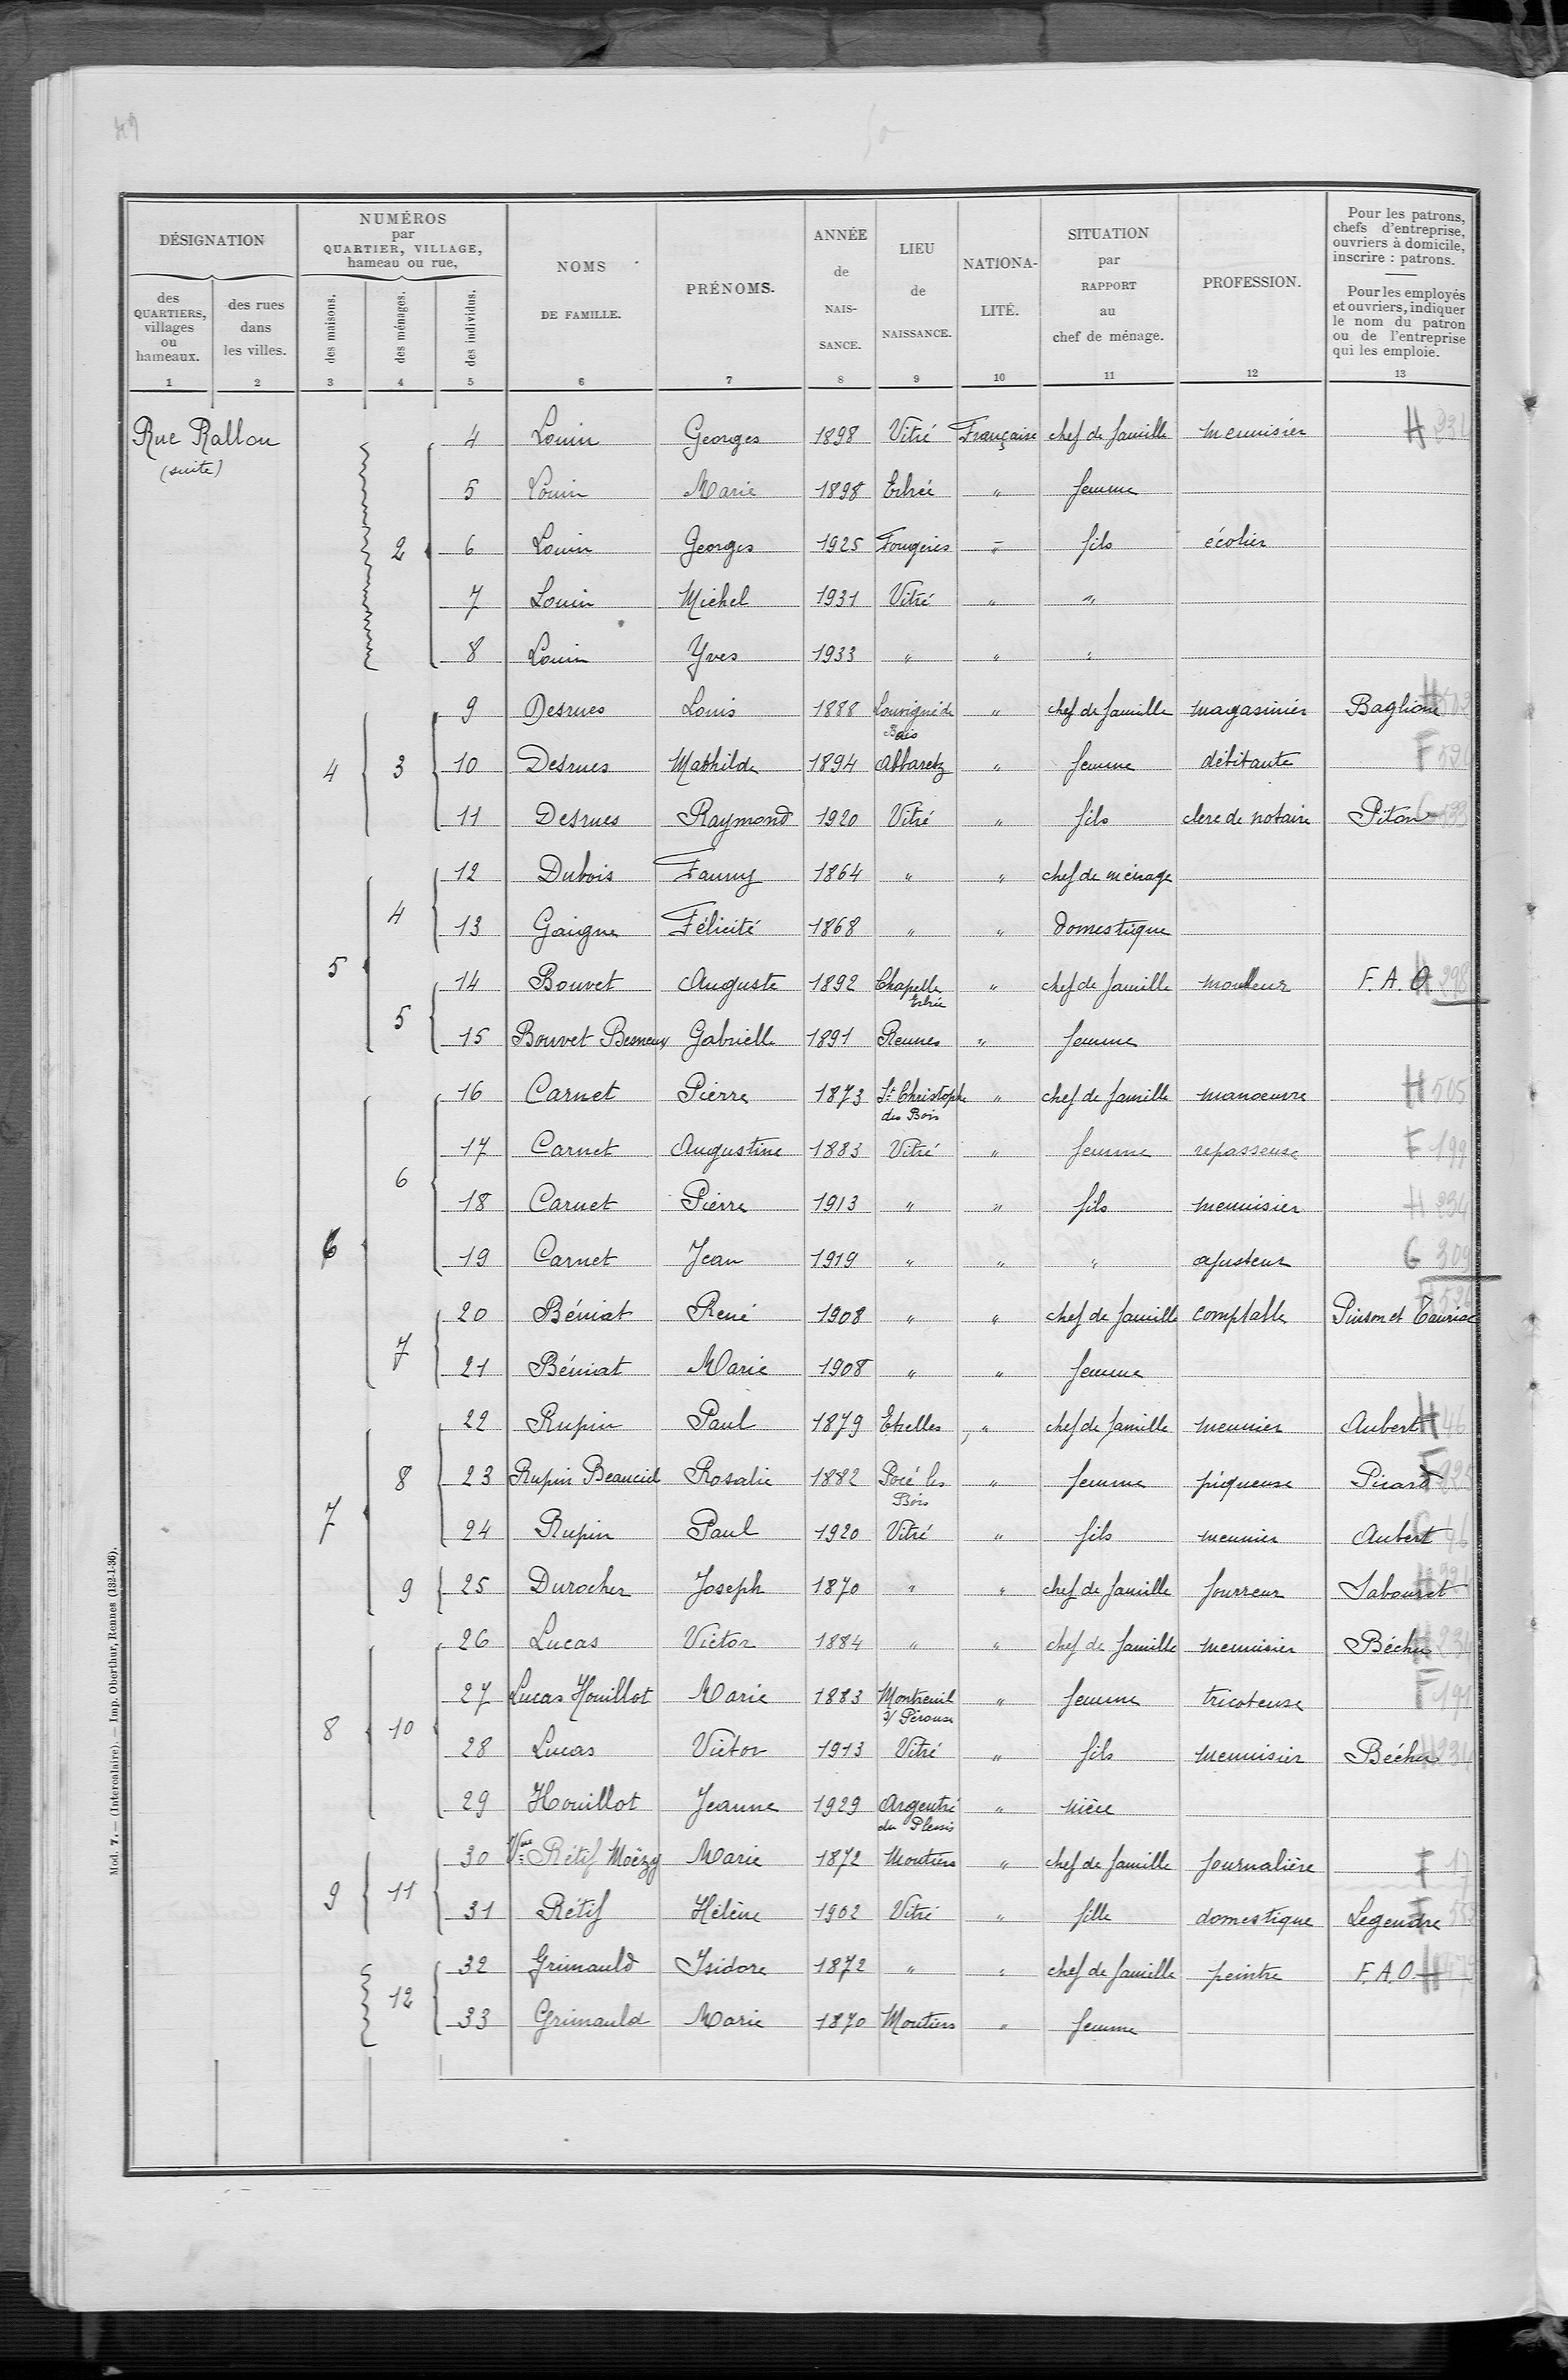 49
DÉSIGNATION
NUMÉROS
par
QUARTIER, VILLAGE,
hameau ou rue,
NOMS
DE FAMILLE.
PRÉNOMS.
ANNÉE
de
NAIS-
SANCE.
LIEU
de
NAISSANCE.
NATIONA-
LITÉ.
SITUATION
par
RAPPORT
au
chef de ménage.
PROFESSION.
Pour les patrons,
chefs d'entreprise,
ouvriers à domicile,
inscrire : patrons.
Pour les employés
et ouvriers, indiquer
le nom du patron
ou de l'entreprise
qui les emploie.
des
QUARTIERS,
villages
ou
hameaux.
des rues
dans
les villes.
des maisons.
des ménages.
des individus.
1 2 3 4 5 6 7 8 9 10 11 12 13
Rue Rallon
(suite)
4 Louin Georges 1898 Vitré Française chef de famille menuisier H
5 Louin Marie 1898 Erbrée " femme
2 6 Louin Georges 1925 Fougères " fils écolier
7 Louin Michel 1931 Vitré " "
8 Louin Yves 1933 " " "
9 Desrues Louis 1888 Louvigné de Bais " chef de famille magasinier Baglione H
4 3 10 Desrues Mathilde 1894 Abbaretz " femme débitante F
11 Desrues Raymond 1920 Vitré " fils clerc de notaire Piton
12 Dubois Fanny 1864 " " chef de ménage
4 13 Gaigne Félicité 1868 " " domestique
5 14 Bouvet Auguste 1892 Chapelle Erbrée " chef de famille mouleur F.A.O. H 298
5 15 Bouvet Besneux Gabrielle 1891 Rennes " femme
16 Carnet Pierre 1873 St Christophe des Bois " chef de famille manoeuvre H 505
17 Carnet Augustine 1883 Vitré " femme repasseuse F 199
6 18 Carnet Pierre 1913 " " fils menuisier H 234
6 19 Carnet Jean 1919 " " " ajusteur G 309
20 Béniat René 1908 " " chef de famille comptable Pinson et Tauriac
7 21 Béniat Marie 1908 " " femme
22 Rupin Paul 1879 Etrelles " chef de famille meunier Aubert H 46
8 23 Rupin Beaucid Rosalie 1882 Pocé les Bois " femme piqueuse Picard F
7 24 Rupin Paul 1920 Vitré " fils meunier Aubert G 46
9 25 Durocher Joseph 1870 " " chef de famille fourreur Sabouret
26 Lucas Victor 1884 " " chef de famille menuisier Béchu H 234
27 Lucas Houillot Marie 1883 Montreuil s/ Pérouse " femme tricoteuse F 191
8 10 28 Lucas Victor 1913 Vitré " fils menuisier Béchu H 234
29 Houillot Jeanne 1929 Argentré du Plessis " nièce
30 Vve Rétif Moëzy Marie 1872 Moutiers " chef de famille journalière F
9 11 31 Rétif Hélène 1902 Vitré " fille domestique Legendre F
32 Grimauld Isidore 1872 " " chef de famille peintre F.A.O. H
12 33 Grimauld Marie 1870 Moutiers " femme
Mod. 7. — (Intercalaire). — Imp. Oberthur, Rennes (132-1-36).